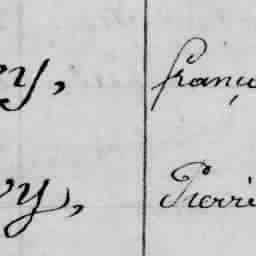 ry, franç
vy, Pierre